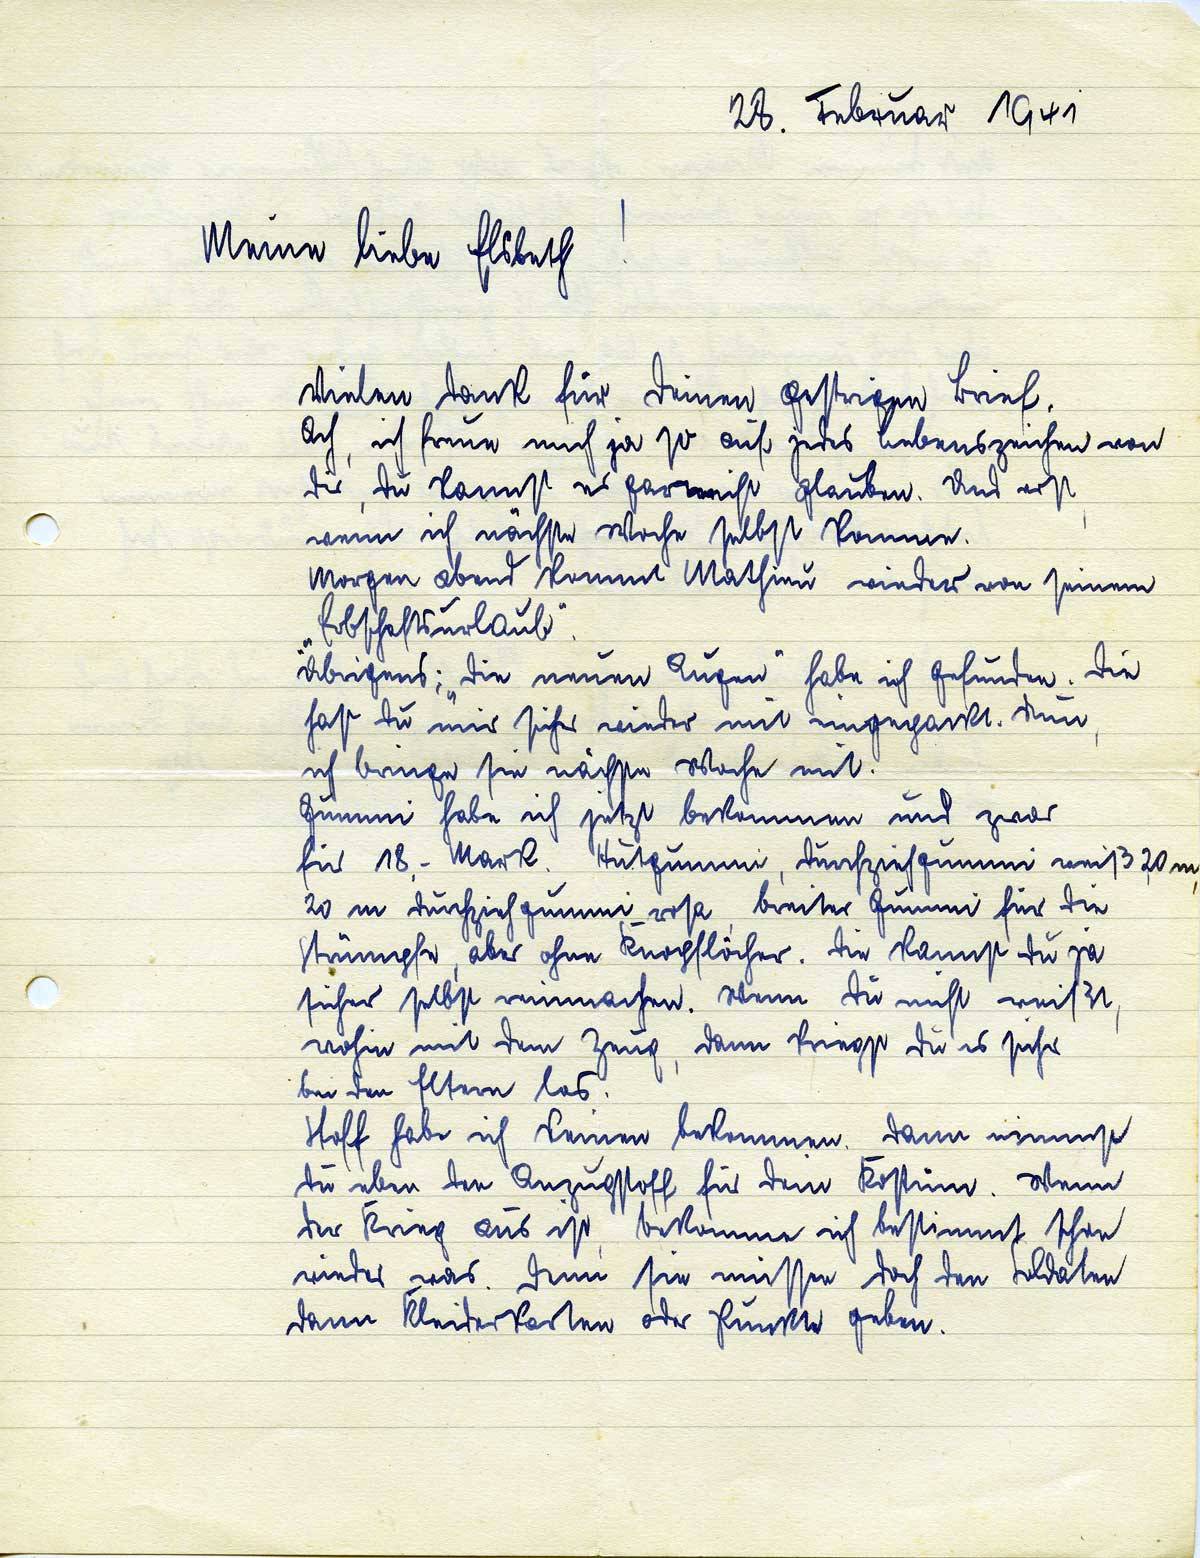 28. Februar 1941
Meine liebe Elsbeth!
Vielen Dank für Deinen gestrigen Brief.
Ach, ich freue mich ja so auf jedes Lebenszeichen von
Dir, Du kannst es garnicht glauben. Und erst,
wenn ich nächste Woche selbst komme.
Morgen abend kommt Mathieu wieder von seinem
„Erbschaftsurlaub“.
Übrigens; „Die neuen Augen“ habe ich gefunden. Die
hast Du mir sicher wieder mit eingepackt. Nun,
ich bringe sie nächste Woche mit.
Gummi habe ich jetzt bekommen und zwar
für 18,- Mark. Hutgummi, Durchziehgummi weiß 20 m,
20 m Durchziehgummi rosa, breiter Gummi für die
Strümpfe, aber ohne Knopflöcher. Die kannst Du ja
sicher selbst reinmachen. Wenn Du nicht weißt,
wohin mit dem Zeug, dann kriegst Du es sicher
bei den Eltern los.
Stoff habe ich keinen bekommen. Dann nimmst
Du eben den Anzugstoff für Dein Kostüm. Wenn
der Krieg aus ist, bekomme ich bestimmt schon
wieder was. Denn sie müssen doch den Soldaten
dann Kleiderkarten oder Punkte geben.